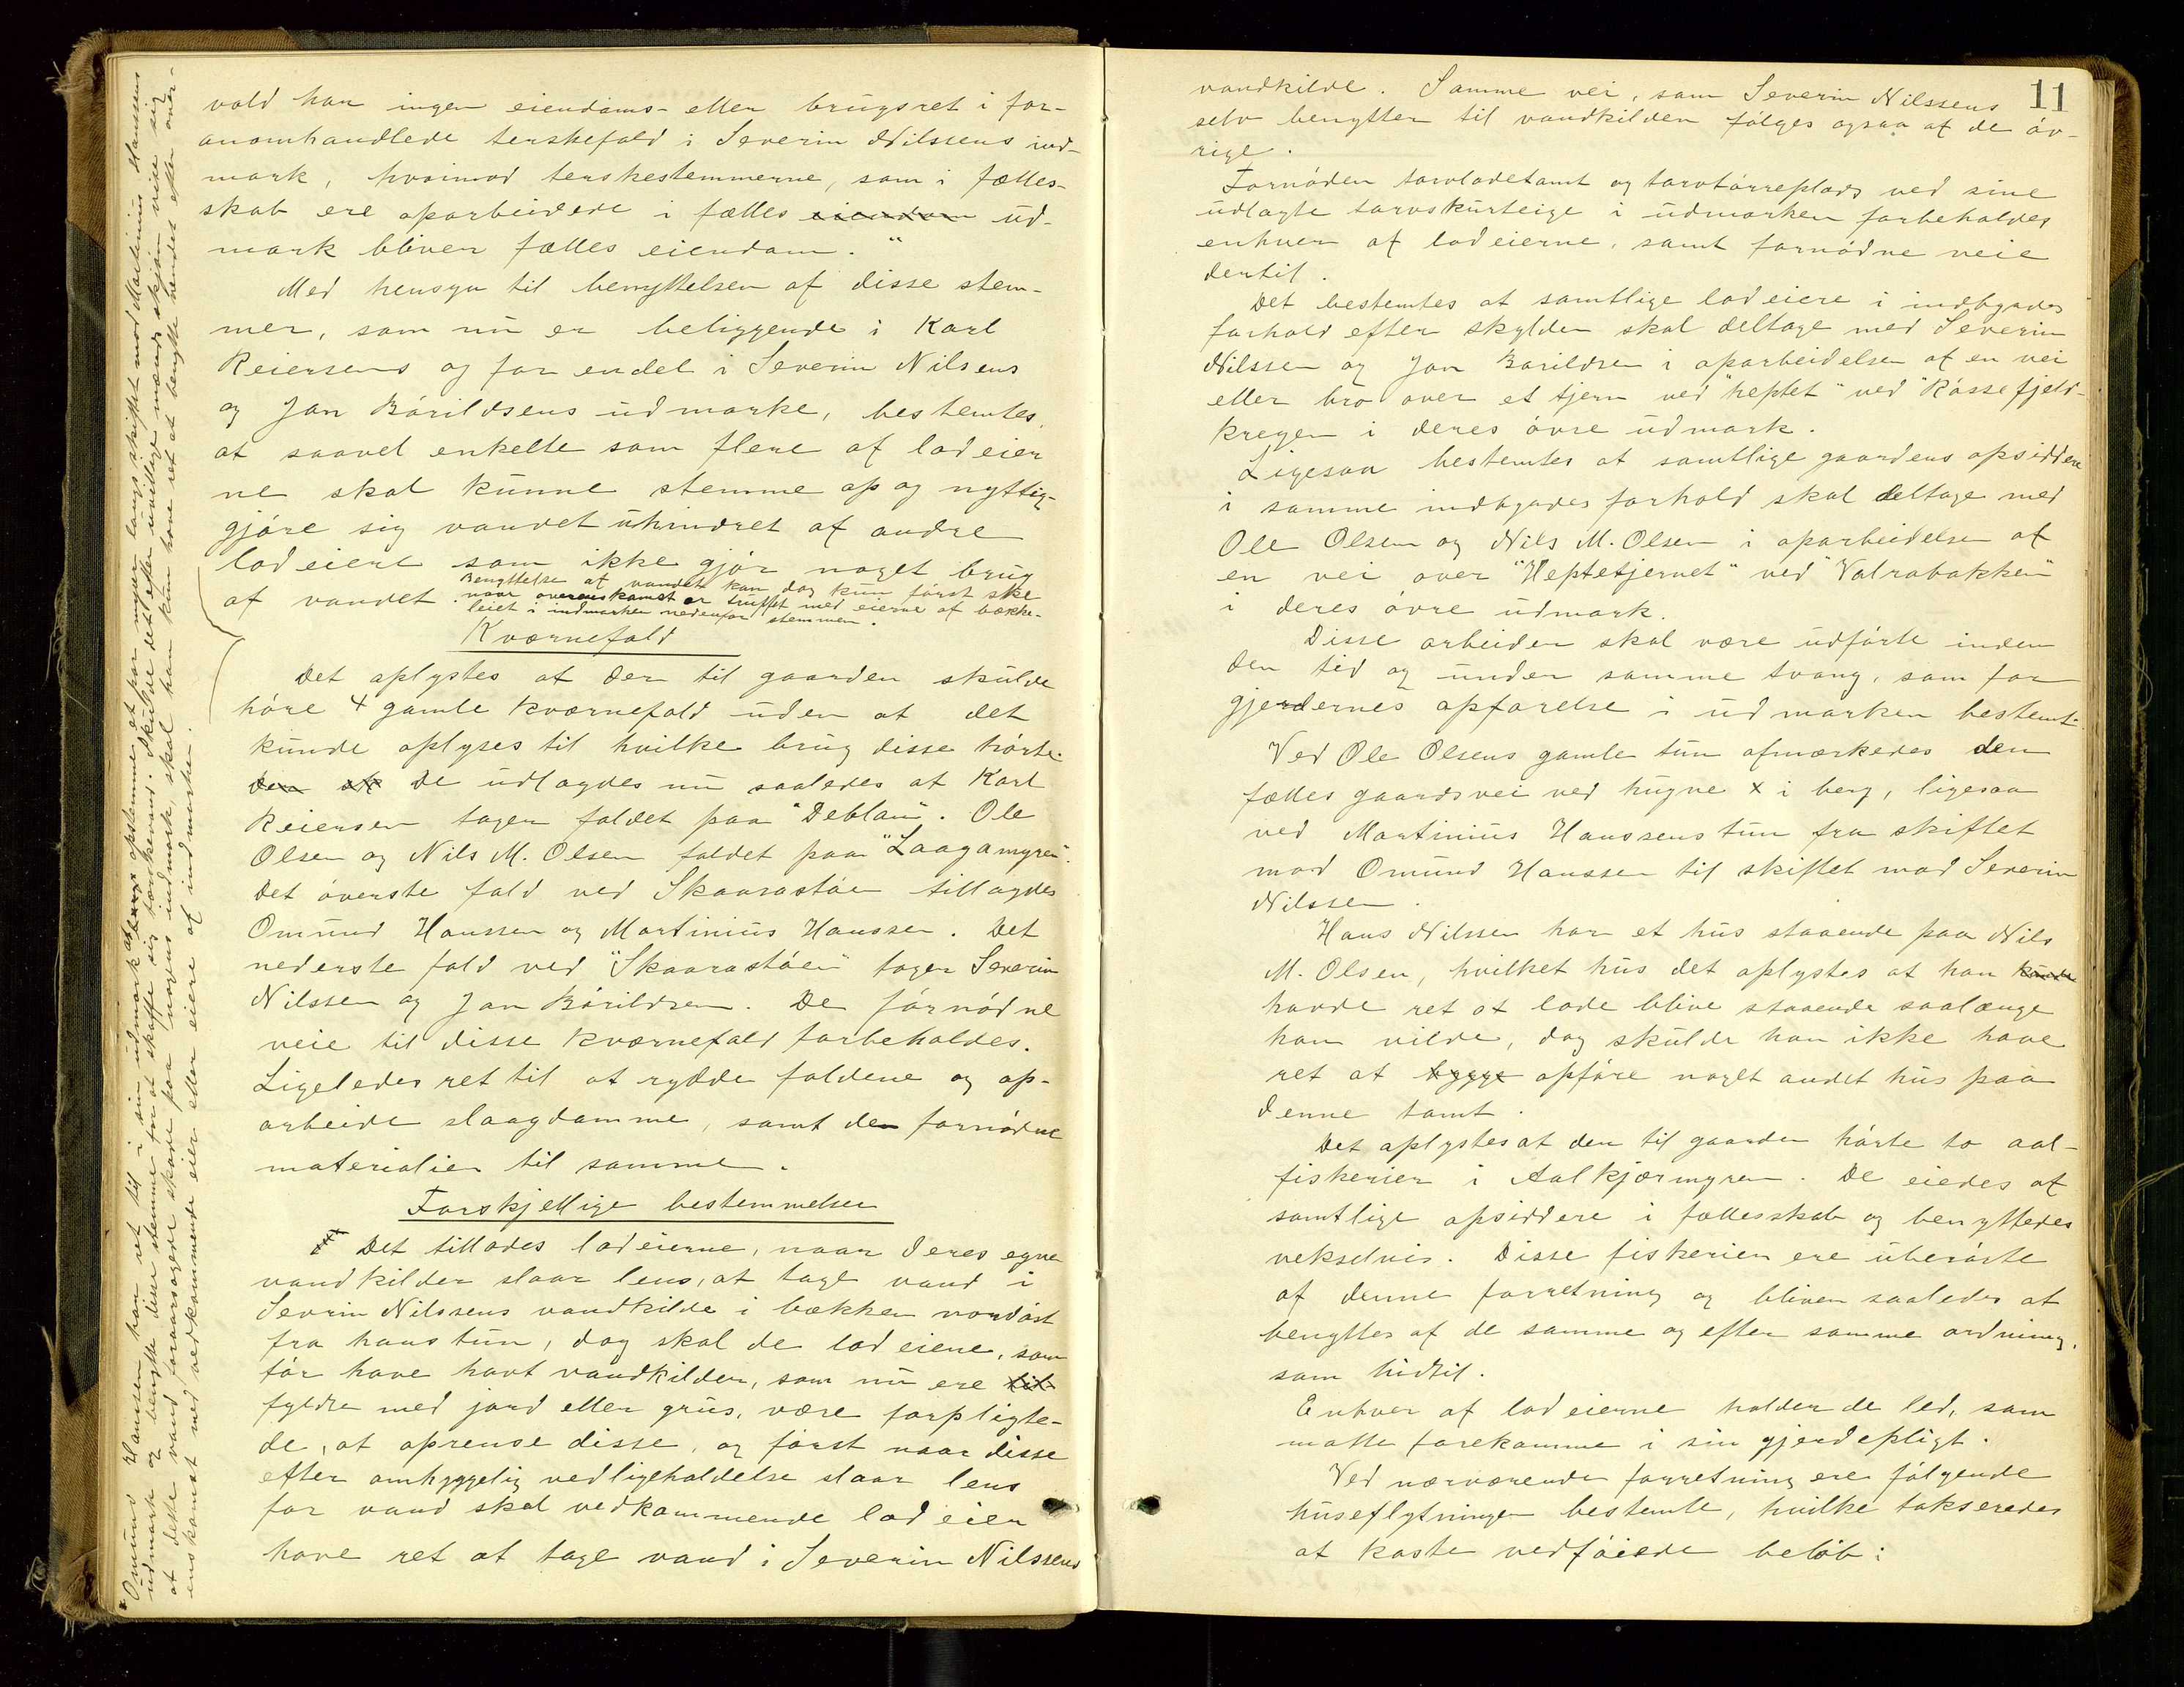 vold har ingen eiendoms- eller brugsret i for-
anomhandlede terskefald i Severin Nilssens ind-
mark, hvoimod terskestemmerne, som i fælles-
skab ere oparbeidede i fælles eiendom ud-
mark bliver fælles eiendom."
Med hensyn til benyttelsen af disse stem-
mer, som nu er beliggende i Karl
Reiersens og for endel i Severin Nilsens
og Jan Bårildsens udmarke, bestemtes,
at saavel enkelte som flere af lodeier
ne skal kunne stemme op og nyttig-
gjøre sig vandet uhindret af andre
lodeiere som ikke gjør noget brug
af vandet. Benyttelse af vandet kan dog kun først ske
naar overenskomst er truffet med eierne af bække-
leiet i indmarken nedenfor stemmen.
Kværnefald
Det oplystes at der til gaarden skulde
høre 4 gamle kværnefald uden at det
kunde oplyses til hvilke brug disse hørte.
Den at De udlagdes nu saaledes at Karl
Reiersen tager faldet paa "Deblan". Ole
Olsen og Nils M. Olsen faldet paa "Laagamyren".
Det øverste fald ved Skaarastøen tillagdes
Omund Hanssen og Martinius Hanssen. Det
nederste fald ved "Skaarastøen" tager Severin
Nilssen og Jan Bårildsen. Deførnødne
veie til disse kværnefald forbeholdes.
Ligeledes ret til at rydde faldene og op-
arbeide slaagdamme, samt den fornødne
materialier til samme.
Forskjellige bestemmelser
Det tillades lodeierne, naar deres egne
vandkilder slaar lens, at tage vand i
Severin Nilssens vandkilde i bækken nordøst
fra hans tun, dog skal de lodeiere, som
før have havt vandkilder, som nu ere til
fyldte med jord eller grus, være forpligte-
de, at oprense disse, og først naar disse
efter omhyggelig vedligeholdelse slaar lens
for vand skal vedkommende lodeier
have ret at tage vand i Severin Nilssens
* Omund Hanssen har ret til i sin udmark at bruge opstemme et par myrer langs skiftet mod Martinius Hanssens
udmark og benytte disse stemme for at skaffe sig torskevand. Skulde det efter uvillige mænds skjøn vise sig
at dette vand foraarsagede skade paa nogens indmark, skal han kun have ret at benytte vandet efter over-
enskomst med vedkommende eier eller eiere af indmarken.
11
vandkilde. Samme vei, som Severin Nilssens
selv benytter til vandkilden følges ogsaa af de øv-
rige.
Fornøden torvladetomt og torvtørreplads ved sine
udlagte torvskurteige i udmarken forbeholdes
enhver af lodeierne, samt fornødne veie
dertil.
Det bestemtes at samtlige lodeiere i indbyrdes
forhold efter skylden skal deltage med Severin
Nilssen og Jan Barildsen i oparbeidelsen af en vei
eller bro over et tjern ved "heptet" ved "Råssefjeld-
kregen i deres øvre udmark.
Ligesaa bestemtes at samtlige gaardens opsiddere
i samme indbyrdes forhold skal deltage med
Ole Olsen og Nils M. Olsen i oparbeidelsen af
en vei over "Heptetjernet" ved "Valrabakken"
i deres øvre udmark.
Disse arbeider skal være udførte inden
den tid og under samme tvang, som for
gjerdernes opførelse i udmarken bestemt.
Ved Ole Olsens gamle tun afmærkedes den
fælles gaardsvei ved hugne x i berg, ligesaa
ved Martinius Hanssens tun fra skiftet
mod Omund Hanssen til skiftet mod Severin
Nilssen.
Hans Nilssen har et hus staaende paa Nils
M. Olsen, hvilket hus det oplystes at han kunde
havde ret at lade blive staaende saalænge
han vilde, dog skulde han ikke have
ret at bygge opføre noget andet hus paa
denne tomt.
Det oplystes at der til gaarden hørte to aal-
fiskerier i Aalkjærmyren. De eiedes af
samtlige opsiddere i fællesskab og benyttedes
vekselvis. Disse fiskerier ere uberørte
af denne forretning og bliver saaledes at
benyttes af de samme og efter samme ordning,
som hidtil.
Enhver af lodeierne holder de led, som
matte forekomme i sin gjerdepligt.
Ved nærværende forretning ere følgende
huseflytninger bestemte, hvilke takseredes
at koste vedføiede beløb: